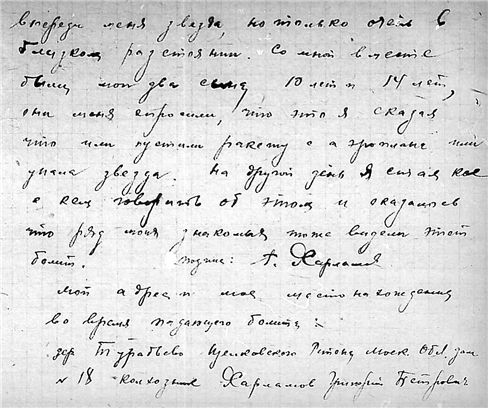 впереди меня звезда, но только очень в
близком разстоянии. Со мной вместе
были мои два сына 10 лет и 14 лет,
они меня спросили, что это я сказал
что или пустили ракету с аэроплана или
упала звезда. На другой день я стал кое
с кем говорить об этом и оказалось
что ряд моих знакомых тоже видели этот
болит. подпис: Г. Харламов
Мой адрес и мое место нахождения
во время падающего болита:
дер Турабьево Щелковского Района Моск. Обл. дом
№ 18 колхозник Харламов Григорий Петрович